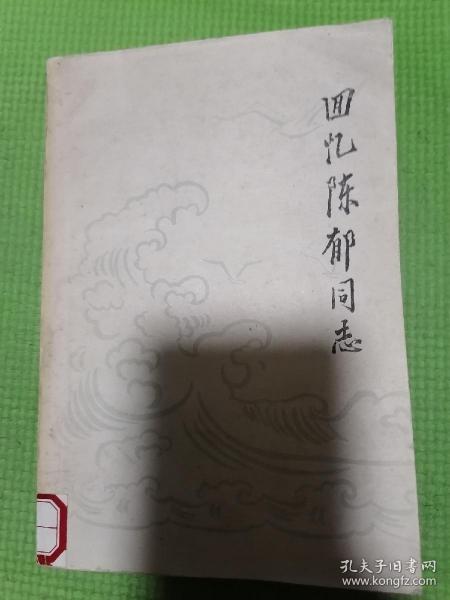 回忆陈郁同志
孔夫子旧书网
www.kongfz.com